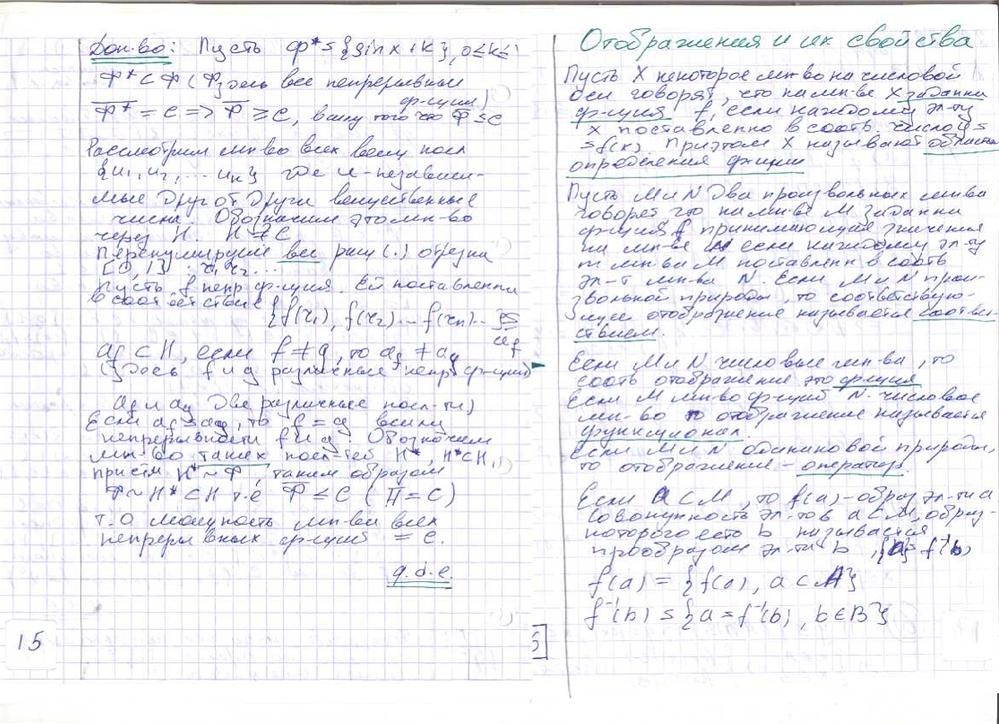 Док-во: Пусть Ф* = {sin x + k}, 0≤k≤1
Ф* ⊂ Ф (Ф здесь все непрерывные
ф-ции)
Ф* = C => Ф ≥ C, в силу того что Ф ≤ C
Рассмотрим мн-во всех посл
{u₁, u₂, ... uₙ} где u - независи-
мые друг от друга вещественные
числа. Обозначим это мн-во
через H. H = C
Перенумеруем все рац (.) отрезка
[0, 1] : r₁ r₂ ...
Пусть f непр ф-ция. Ей поставлены
в соответствие
{f(r₁), f(r₂) ... f(rₙ)...} =
= a_f
a_f ⊂ H, если f ≠ g, то a_f ≠ a_g
(Здесь f и g различные непр ф-ции)
a_f и a_g две различные посл-ти)
Если a_f = a_g, то f = g в силу
непрерывности f и g. Обозначим
мн-во таких посл-тей H*, H* ⊂ H,
при этом H* ~ Ф, таким образом
Ф ~ H* ⊂ H т.е Ф ≤ C (H = C)
т.о мощность мн-ва всех
непрерывных ф-ций = C.
q.d.e.
15
Отображения и их свойства
Пусть X некоторое мн-во на числовой
оси говорят, что на мн-ве X задана
функция f, если каждому эл-ту
X поставлено в соотв число y =
= f(x). При этом X называют область
определения функции
Пусть M и N два произвольных мн-ва
говорят что на мн-ве M задана
функция f принимающие значения
на мн-ве N если каждому эл-ту
m мн-ва M поставлен в соотв
эл-т мн-ва N. Если M и N прои-
звольной природы, то соответствую-
щее отображение называется соответ-
ствием.
Если M и N числовые мн-ва, то
соотв отображение это функция
Если M мн-во функций N - числовое
мн-во то отображение называется
функционал.
Если M и N одинаковой природы,
то отображение - оператор.
Если a ⊂ M, то f(a) - образ эл-та a
Совокупность эл-тов a ⊂ M, образ
которого есть b называется
прообразом эл-та b, {a} = f⁻¹(b)
f(a) = {f(a), a ⊂ A}
f⁻¹(b) = {a = f⁻¹(b), b ∈ B}